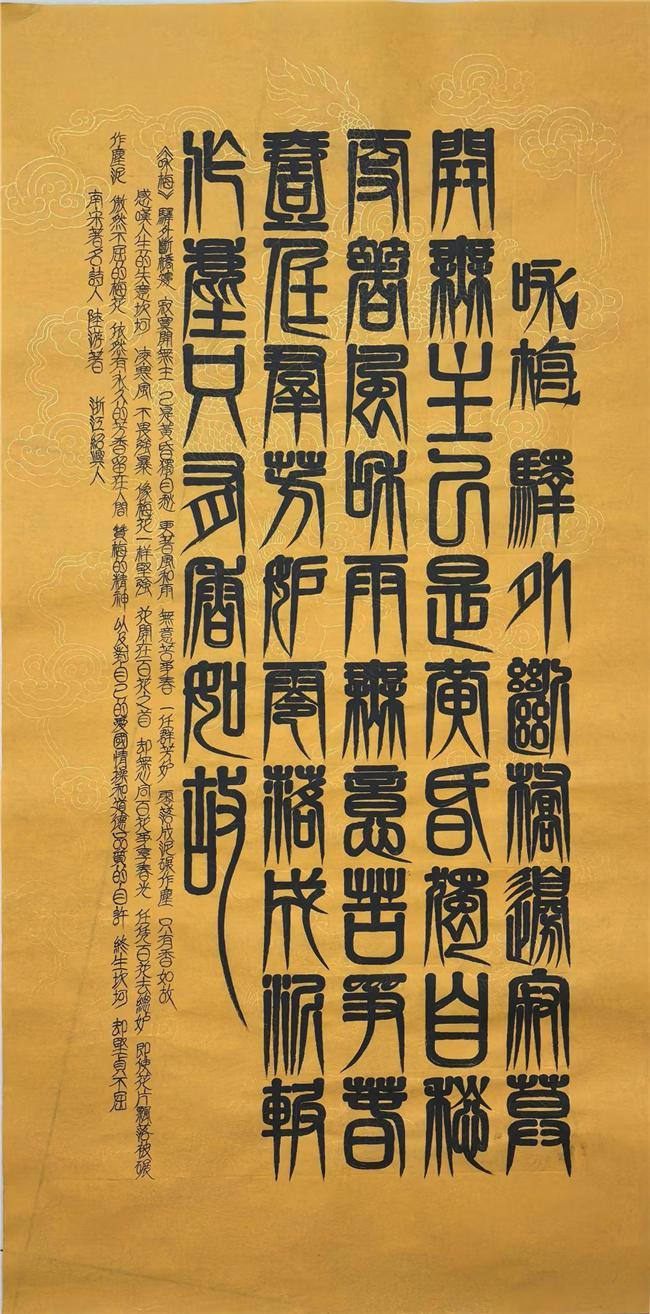 咏梅 驛外斷橋邊寂莫
開無主已是黄昏獨自愁
更著風咊雨無意苦爭春
壹任羣芳妒零落成泥
作塵只有香如故
《咏梅》 驛外斷橋邊 寂寞開無主 已是黄昏獨自愁 更著風和雨 無意苦爭春 一任群芳妒 零落成泥碾作塵 只有香如故
感嘆人生的失意坎坷 凌寒風 不畏強暴 像梅花一样堅強 花開在百花之首 却無心同百花爭享春光 任凭百花去總妒 即使花片飄落被碾
作塵泥 傲然不屈的梅花 依然有永久的芳香留在人間 贊梅的精神 以及對自己的愛國情操和道德品質的自許 終生坎坷 却堅貞不屈
南宋著名詩人 陸游著 浙江紹興人